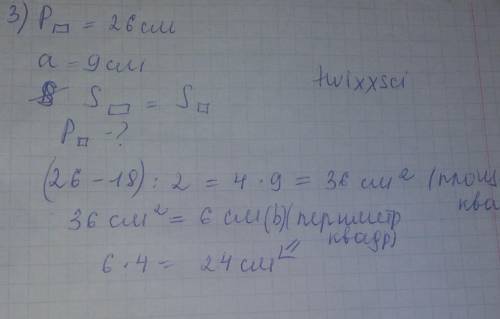 3) P▭ = 26 см
a = 9 см
twixxsci
S▭ = S□
P□ - ?
(26 - 18) : 2 = 4 · 9 = 36 см² (площ
ква
36 см² = 6 см (b) (периметр
квадр)
6 · 4 = 24 см